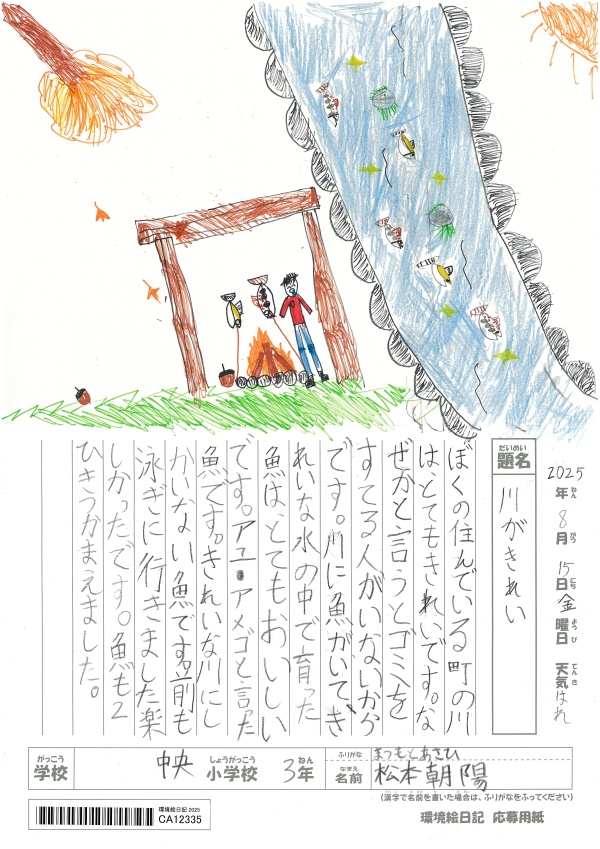 2025年8月15日金曜日 天気はれ
ねん がつ にち ようび てんき
だいめい
題名
川がきれい
ぼくの住んでいる町の川
はとてもきれいです。な
ぜかと言うとゴミを
すてる人がいないから
です。川に魚がいてき
れいな水の中で育った
魚はとてもおいしい
です。アユ・アメゴと言った
魚です。きれいな川にし
かいない魚です。前も
泳ぎに行きました楽
しかったです。魚も2
ひきつかまえました。
がっこう しょうがっこう ねん
学校 中央 小学校 3年
ふりがな まつもとあさひ
なまえ
名前 松本朝陽
(漢字で名前を書いた場合は、ふりがなをふってください)
環境絵日記 2025
CA12335
環境絵日記 応募用紙